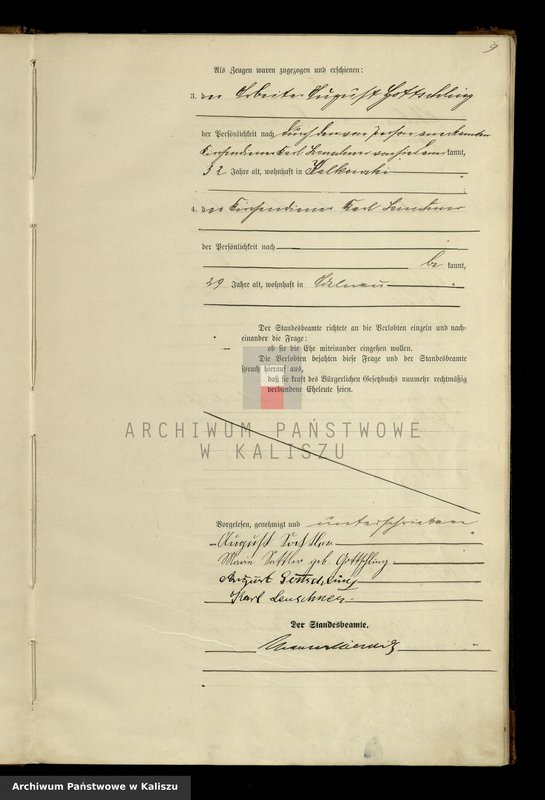 9
Als Zeugen waren zugezogen und erschienen:
3. der Arbeiter August Gottschling
der Persönlichkeit nach durch den von Person anerkannten
Kirchendiener Karl Leuschner kannt,
32 Jahre alt, wohnhaft in
4. der Kirchendiener Karl Leuschner
der Persönlichkeit nach
be kannt,
29 Jahre alt, wohnhaft in Adelnau
Der Standesbeamte richtete an die Verlobten einzeln und nach-
einander die Frage:
ob sie die Ehe miteinander eingehen wollen.
Die Verlobten bejahten diese Frage und der Standesbeamte
sprach hierauf aus,
daß sie kraft des Bürgerlichen Gesetzbuchs nunmehr rechtmäßig
verbundene Eheleute seien.
ARCHIWUM PAŃSTWOWE
W KALISZU
Vorgelesen, genehmigt und unterschrieben
August Sattler
Marie Sattler geb. Gottschling
August Gottschling
Karl Leuschner
Der Standesbeamte.
Archiwum Państwowe w Kaliszu